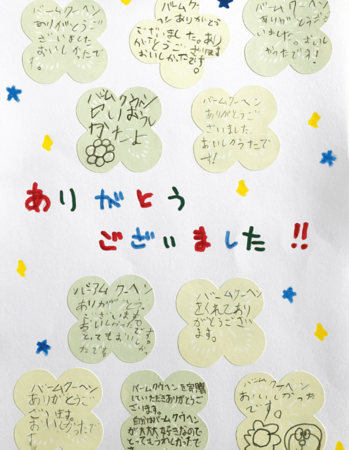 バームクーヘン
ありがとうござ
いました
おいしかったで
す。
バームクーヘ
ン ありがとう
ございました。あり
がとうございます
おいしかったです
バームクーヘン
ありがとうござ
いました。おいし
かったです!
バムクウヘン
おいしかったよ
バームクーヘン
ありがとう
ございました
おいしかったで
す!
ありがとう
ございました!!
バアムクーヘン
ありがとう。
バームクーヘン
をくれてあり
がとうござい
ます。
バームクーヘン
ありがとうご
ざいます。
おいしかったで
す
バームクウヘンを
していただきありがとうご
ざいます。
自分はバームクウヘン
が大大好きなので
とってもうれしかったで
バームクーヘン
おいしかった
です。